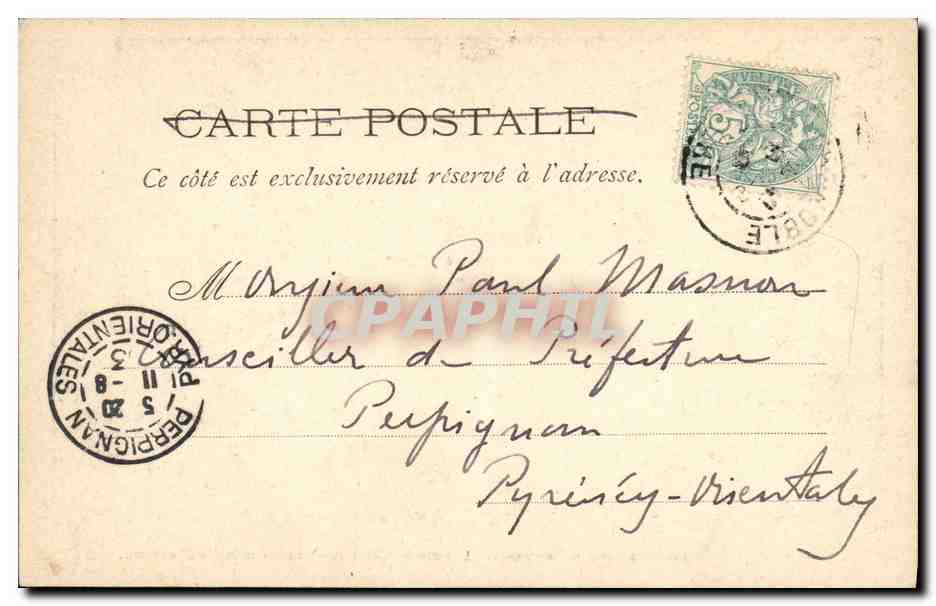 CARTE POSTALE
Ce côté est exclusivement réservé à l'adresse.
5
OBLE
Monsieur Paul Masnou
CPAPHIL
Conseiller de Préfecture
Perpignan
Pyrénées-Orientales
PERPIGNAN
PYR. ORIENTALES
5 20
11 -8